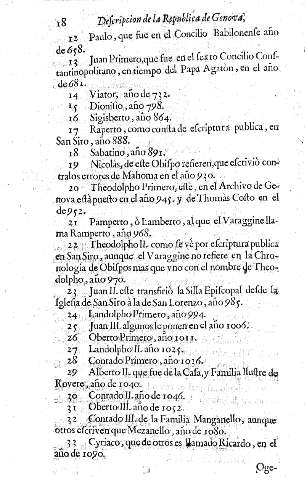 18 Descripcion de la Republica de Genova,
12 Paulo, que fue en el Concilio Babilonense año
de 658.
13 Juan Primero, que fue en el sexto Concilio Cons-
tantinopolitano, en tiempo del Papa Agaton, en el año
de 681.
14 Viator, año de 732.
15 Dionisio, año 798.
16 Sigisberto, año 864.
17 Raperto, como consta de escriptura publica, en
San Siro, año 888.
18 Sabatino, año 891.
19 Nicolas, de este Obispo refieren, que escrivió con-
tra los errores de Mahoma en el año 930.
20 Theodolpho Primero, este, en el Archivo de Ge-
nova està puesto en el año 945, y de Thomàs Costo en el
de 952.
21 Pamperto, ò Lamberto, al que el Varaggine lla-
ma Ramperto, año 968.
22 Theodolpho II. como se vè por escriptura publica
en San Siro, aunque el Varaggine no refiere en la Chro-
nologia de Obispos mas que vno con el nombre de Theo-
dolpho, año 970.
23 Juan II. este transfirió la Silla Episcopal desde la
Iglesia de San Siro à la de San Lorenzo, año 985.
24 Landolpho Primero, año 994.
25 Juan III. algunos le ponen en el año 1006.
26 Oberto Primero, año 1013.
27 Landolpho II. año 1025.
28 Conrado Primero, año 1036.
29 Alberto II. que fue de la Casa, y Familia Ilustre de
Rovere, año de 1040.
30 Contado II. año de 1046.
31 Oberto III. año de 1052.
32 Conrado III. de la Familia Manganello, aunque
otros escriven que Mezanello, año de 1080.
33 Cyriaco, que de otros es llamado Ricardo, en el
año de 1090.
Oge-